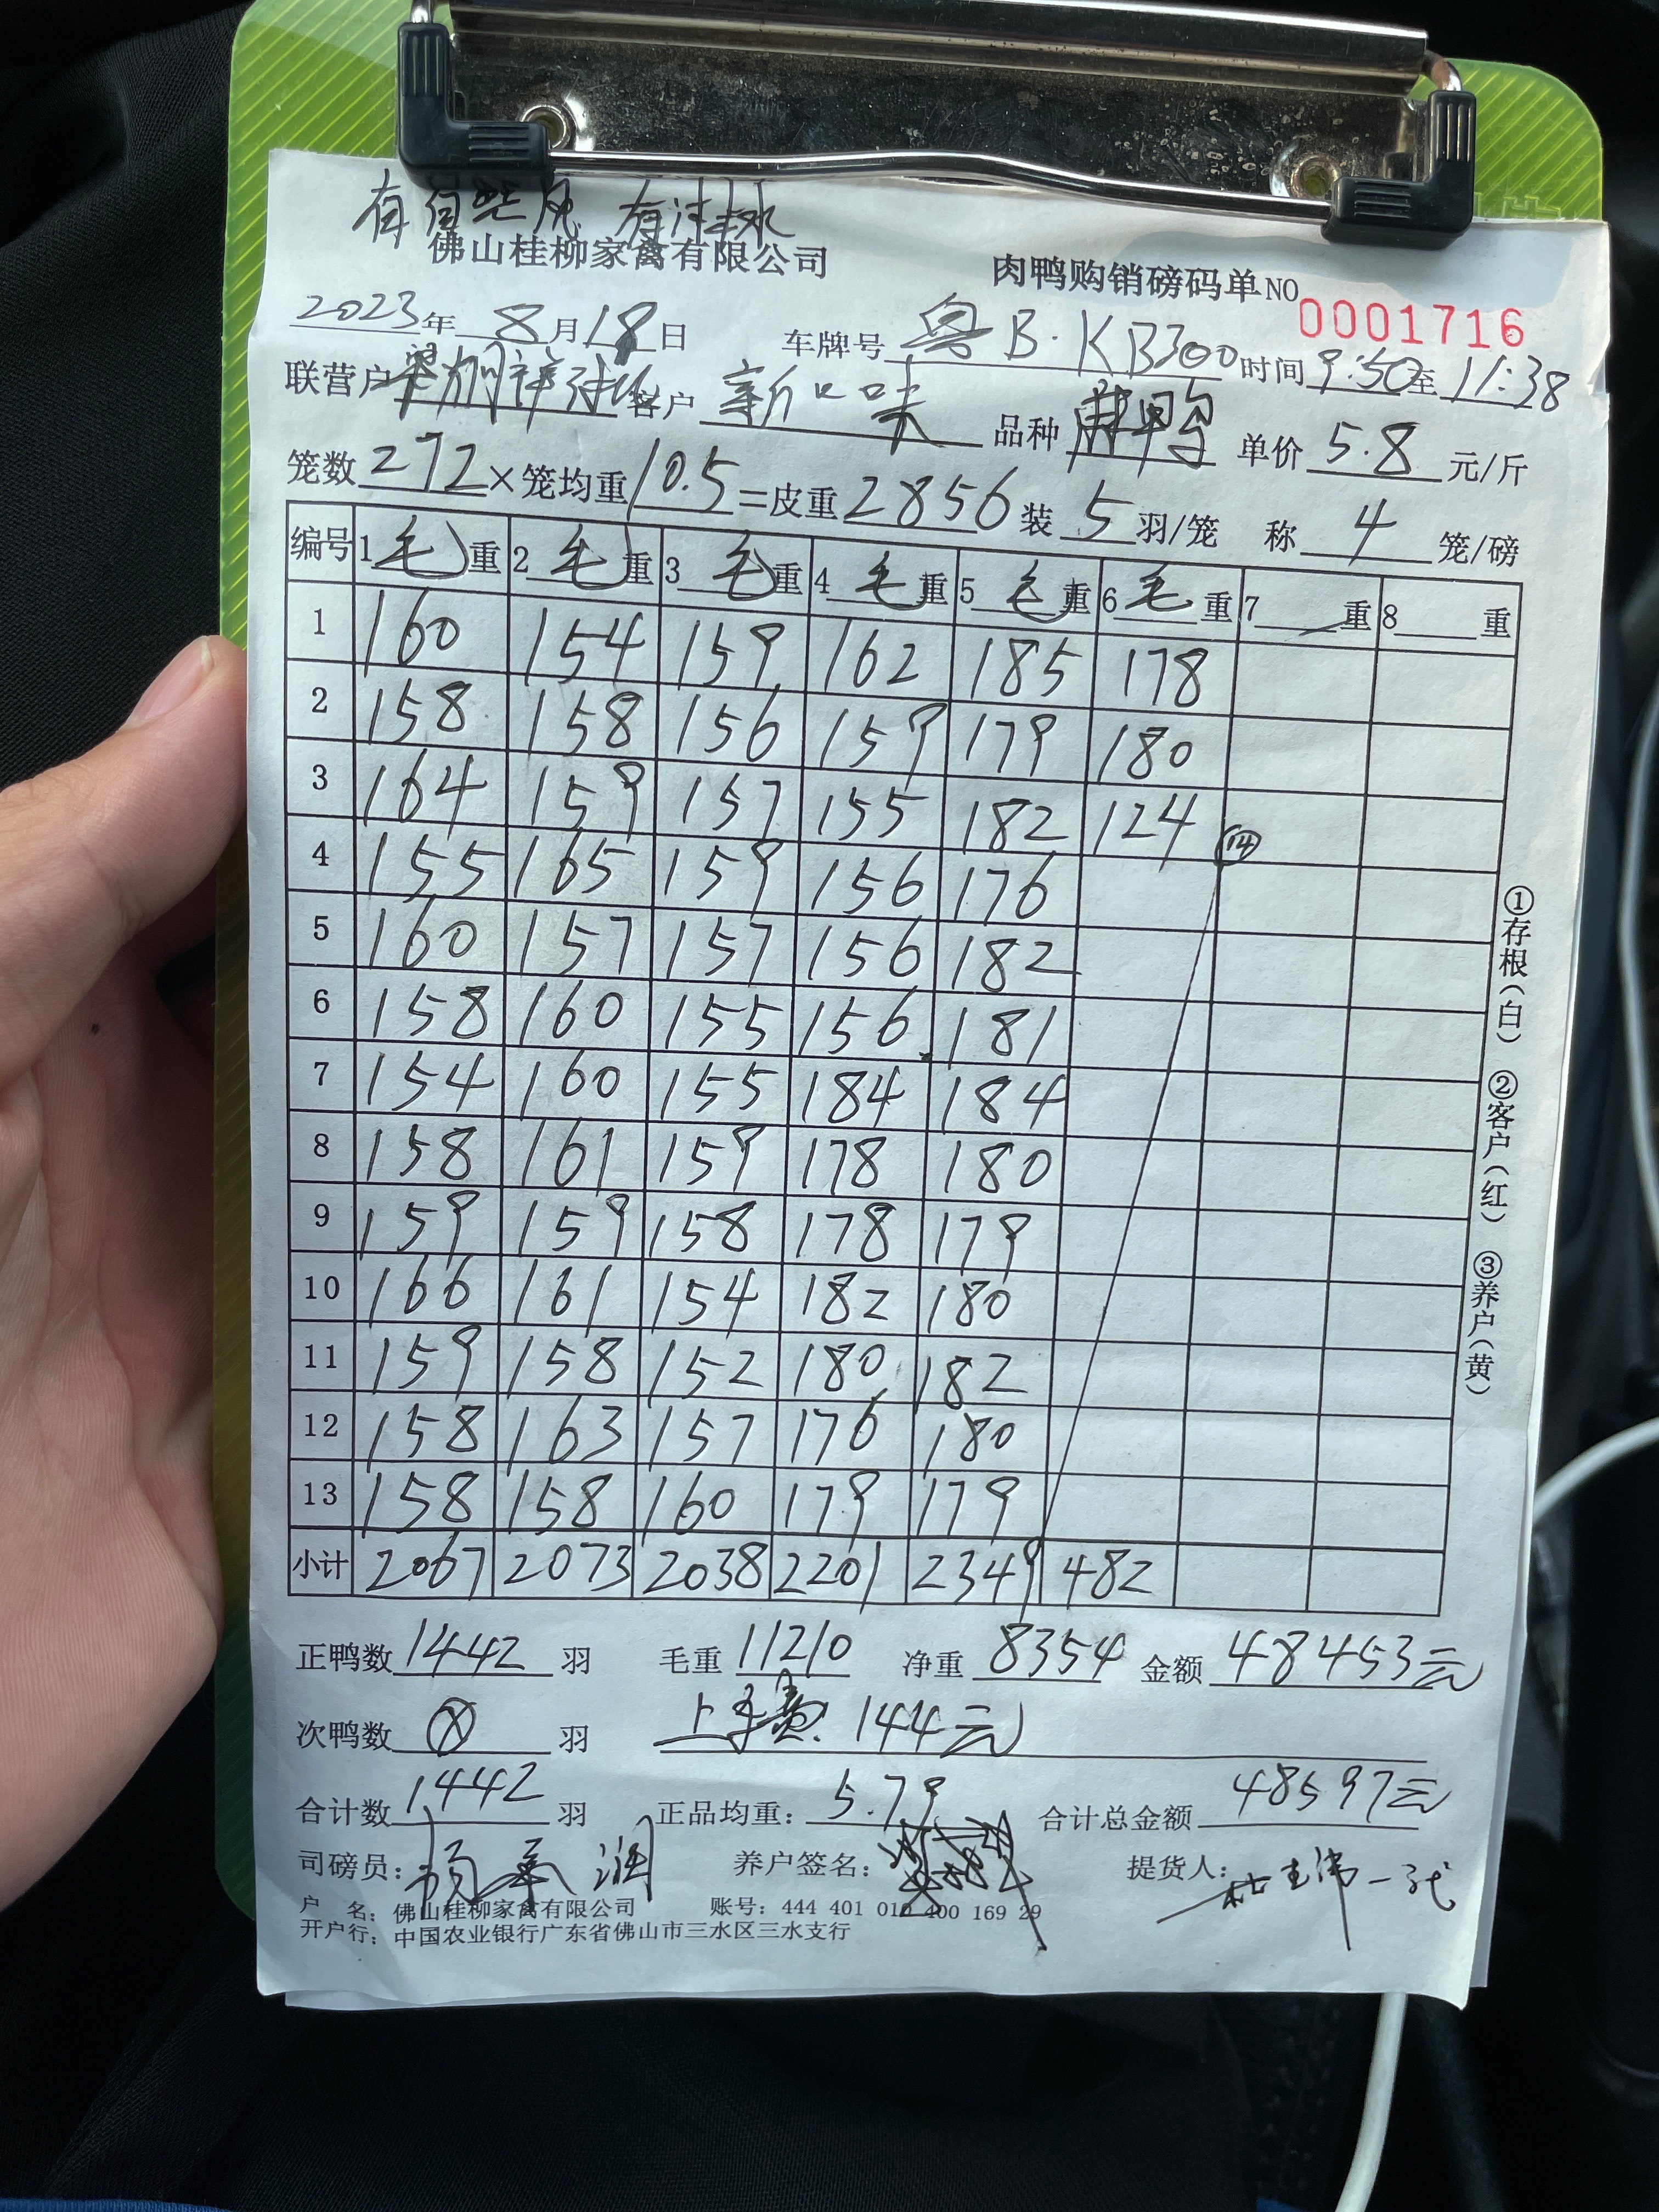 有自然风 有淋水
佛山桂柳家禽有限公司 肉鸭购销磅码单NO 0001716
2023年 8月18日 车牌号 粤B·KB300 时间 9:50至 11:38
联营户 客户 新口味 品种 麻鸭 单价 5.8 元/斤
笼数 272 ×笼均重 10.5 =皮重 2856 装 5 羽/笼 称 4 笼/磅
编号 1 毛 重 2 毛 重 3 毛 重 4 毛 重 5 毛 重 6 毛 重 7 重 8 重
1 160 154 159 162 185 178
2 158 158 156 159 179 180
3 164 159 157 155 182 124 ⑭
4 155 165 159 156 176
5 160 157 157 156 182
6 158 160 155 156 181
7 154 160 155 184 184
8 158 161 159 178 180
9 159 159 158 178 179
10 166 161 154 182 180
11 159 158 152 180 182
12 158 163 157 176 180
13 158 158 160 179 179
小计 2067 2073 2038 2201 2349 482
正鸭数 1442 羽 毛重 11210 净重 8354 金额 48453元
次鸭数 ⊗ 羽 上车费 144元
合计数 1442 羽 正品均重: 5.79 合计总金额 48597元
司磅员: 养户签名: 提货人:
户 名: 佛山桂柳家禽有限公司 账号: 444 401 010 400 169 29
开户行: 中国农业银行广东省佛山市三水区三水支行
①存根(白) ②客户(红) ③养户(黄)